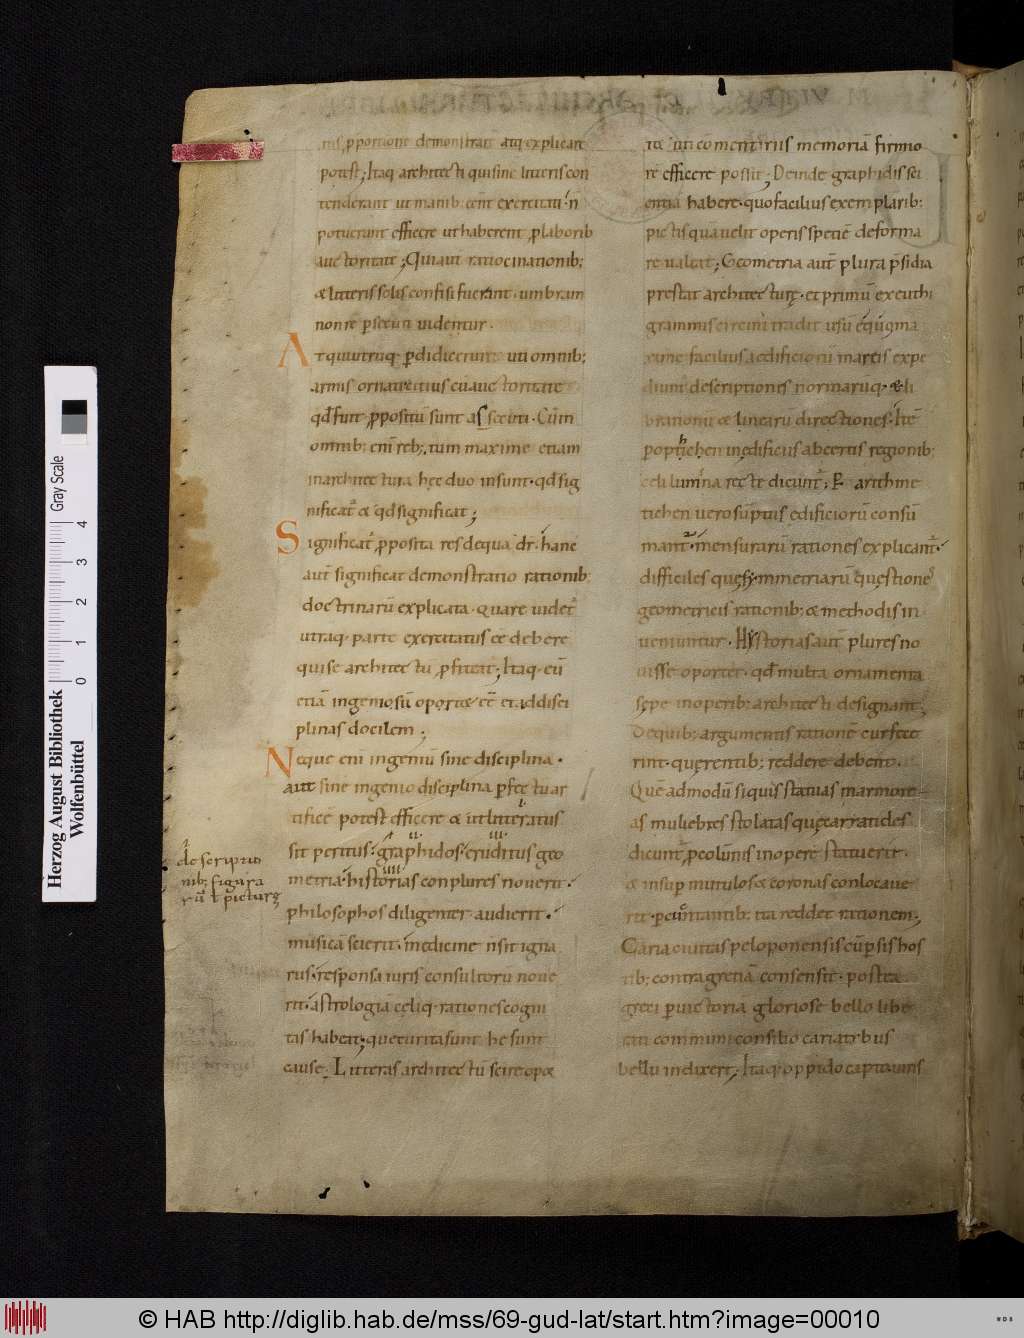 nis p̄portione demonstrare atq; explicare
potest; Itaq; architecti qui sine litteris con
tenderant ut manib; eēnt exercitati n̄
potuerunt efficere ut haberent p̄laborib
auctoritatē; Qui aut̄ ratiocinationib;
& litteris solis confisi fuerunt. umbram
non rē p̄secuti videntur.
At qui utrūq; p̄didicerunt uti omnib;
armis ornati citius cū auctoritate
qd̄ fuit p̄positū sunt assecuti. Cūm
omnib; enī reb; tum maxime etiam
in architectura hęc duo insunt. qd̄ sig
nificat̄ & qd̄ significat;
Significat̄ p̄posita res de qua dr̄. hanc
aut̄ significat demonstratio rationib;
doctrinarū explicata. quare videt̄
utraq; parte exercitatus eē debere
qui se architectū p̄fiteat̄; Itaq; eū
etiā ingeniosū oportet eē et addisci
plinas docilem;
Neque enī ingeniū sine disciplina.
aut sine ingenio disciplina p̄fectū ar
tificē potest efficere & ut litteratus
sit peritus. graphidos. eruditus geo
metria. historias conplures noverit.
philosophos diligenter audierit.
musicā scierit. medicinę n̄ sit igna
rus. responsa iuris consultorū nove
rit. astrologiā cęliq; rationes cogni
tas habeat; que cur ita sunt he sunt
cause. Litteras architectū scire opor
i descriptio
nib; figura
rū ł picturę
tet uti comentariis memoriā firmio
rē efficere possit; Deinde graphidis sci
entiā habere. quo facilius exemplarib;
pictis qua velit operis speciē deforma
re valeat; Geometria aut̄ plura p̄sidia
prestat architecturę. et primū ex euthi
grammis circini tradit usū e quo ma
xime facilius aedificiorū in areis expe
diunt descriptiones normarūq; & li
brationū & linearū directiones. Itē
p optichen in ędificiis ab certis regionib;
celi lumina rectē dicunt̄; P̄ arithme
tichen vero sūmptus ędificiorū consū
mant̄. mensurarū rationes explicant̄.
difficiles quę symmetriarū quęstiones
geometricis rationib; & methodis in
veniuntur. Hystorias aut̄ plures no
visse oportet. qd̄ multa ornamenta
sępe in operib; architecti designant;
De quib; argumentis rationē cur fece
rint. querentib; reddere debent.
Quē admodū si quis statuas marmore
as muliebres stolatas quę carratides
dicunt̄ p̄ colūnis in opere statuerit.
& insup̄ mutulos & coronas conlocave
rit. p̄cūntantib; ita reddet rationem;
Caria civitas peloponensis cū p̄sis hos
tib; contra gretiā consensit. postea
greci p̄ victoriā gloriose bello libe
rati communi consilio cariatibus
bellū indixert̄; Itaq; oppido capto viris
Herzog August Bibliothek
Wolfenbüttel
0 1 2 3 4
Gray Scale
© HAB http://diglib.hab.de/mss/69-gud-lat/start.htm?image=00010